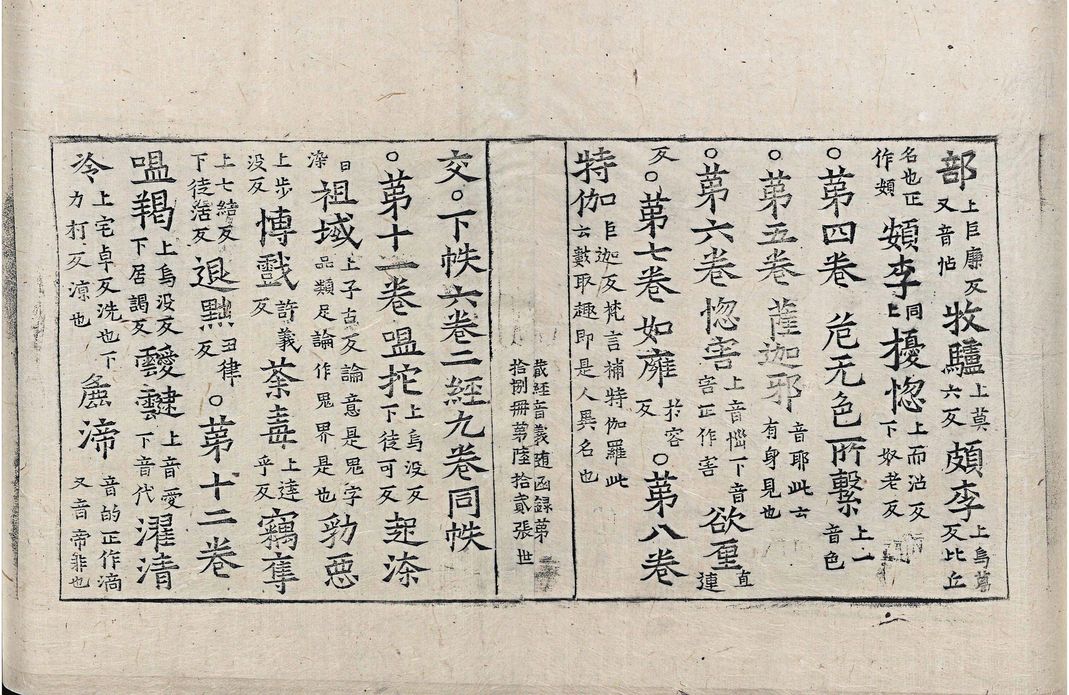 部上巨廉反又音帖牧驢上莫六反頗李上烏葛反比丘
名也正作頞頞李同上擾惚上而沼反下奴老反
○第四卷 苊无色所繫上一音色
○第五卷薩迦邪音耶此云有身見也
○第六卷惚害上音惱下音害正作害欲重直連
反○第七卷如雍於容反○第八卷
特伽巨迦反梵言補特伽羅此云數取趣即是人異名也
藏經音義随函録第拾捌冊第陸拾貳張 世
交○下帙六卷二經九卷同帙
○第十一卷嗢拕上烏没反下徒可反起洓
日染祖域上子古反論意是鬼字品類足論作鬼界是也㓜惡
上步没反愽戲許義反荼毒上達乎反竊奪
上七結反下徒活反退黙丑律反○第十二卷
嗢羯上烏没反下居謁反靉靆上音愛下音代濯清
冷上宅卓反洗也下力打反凉也麁渧音的正作滴又音帝非也